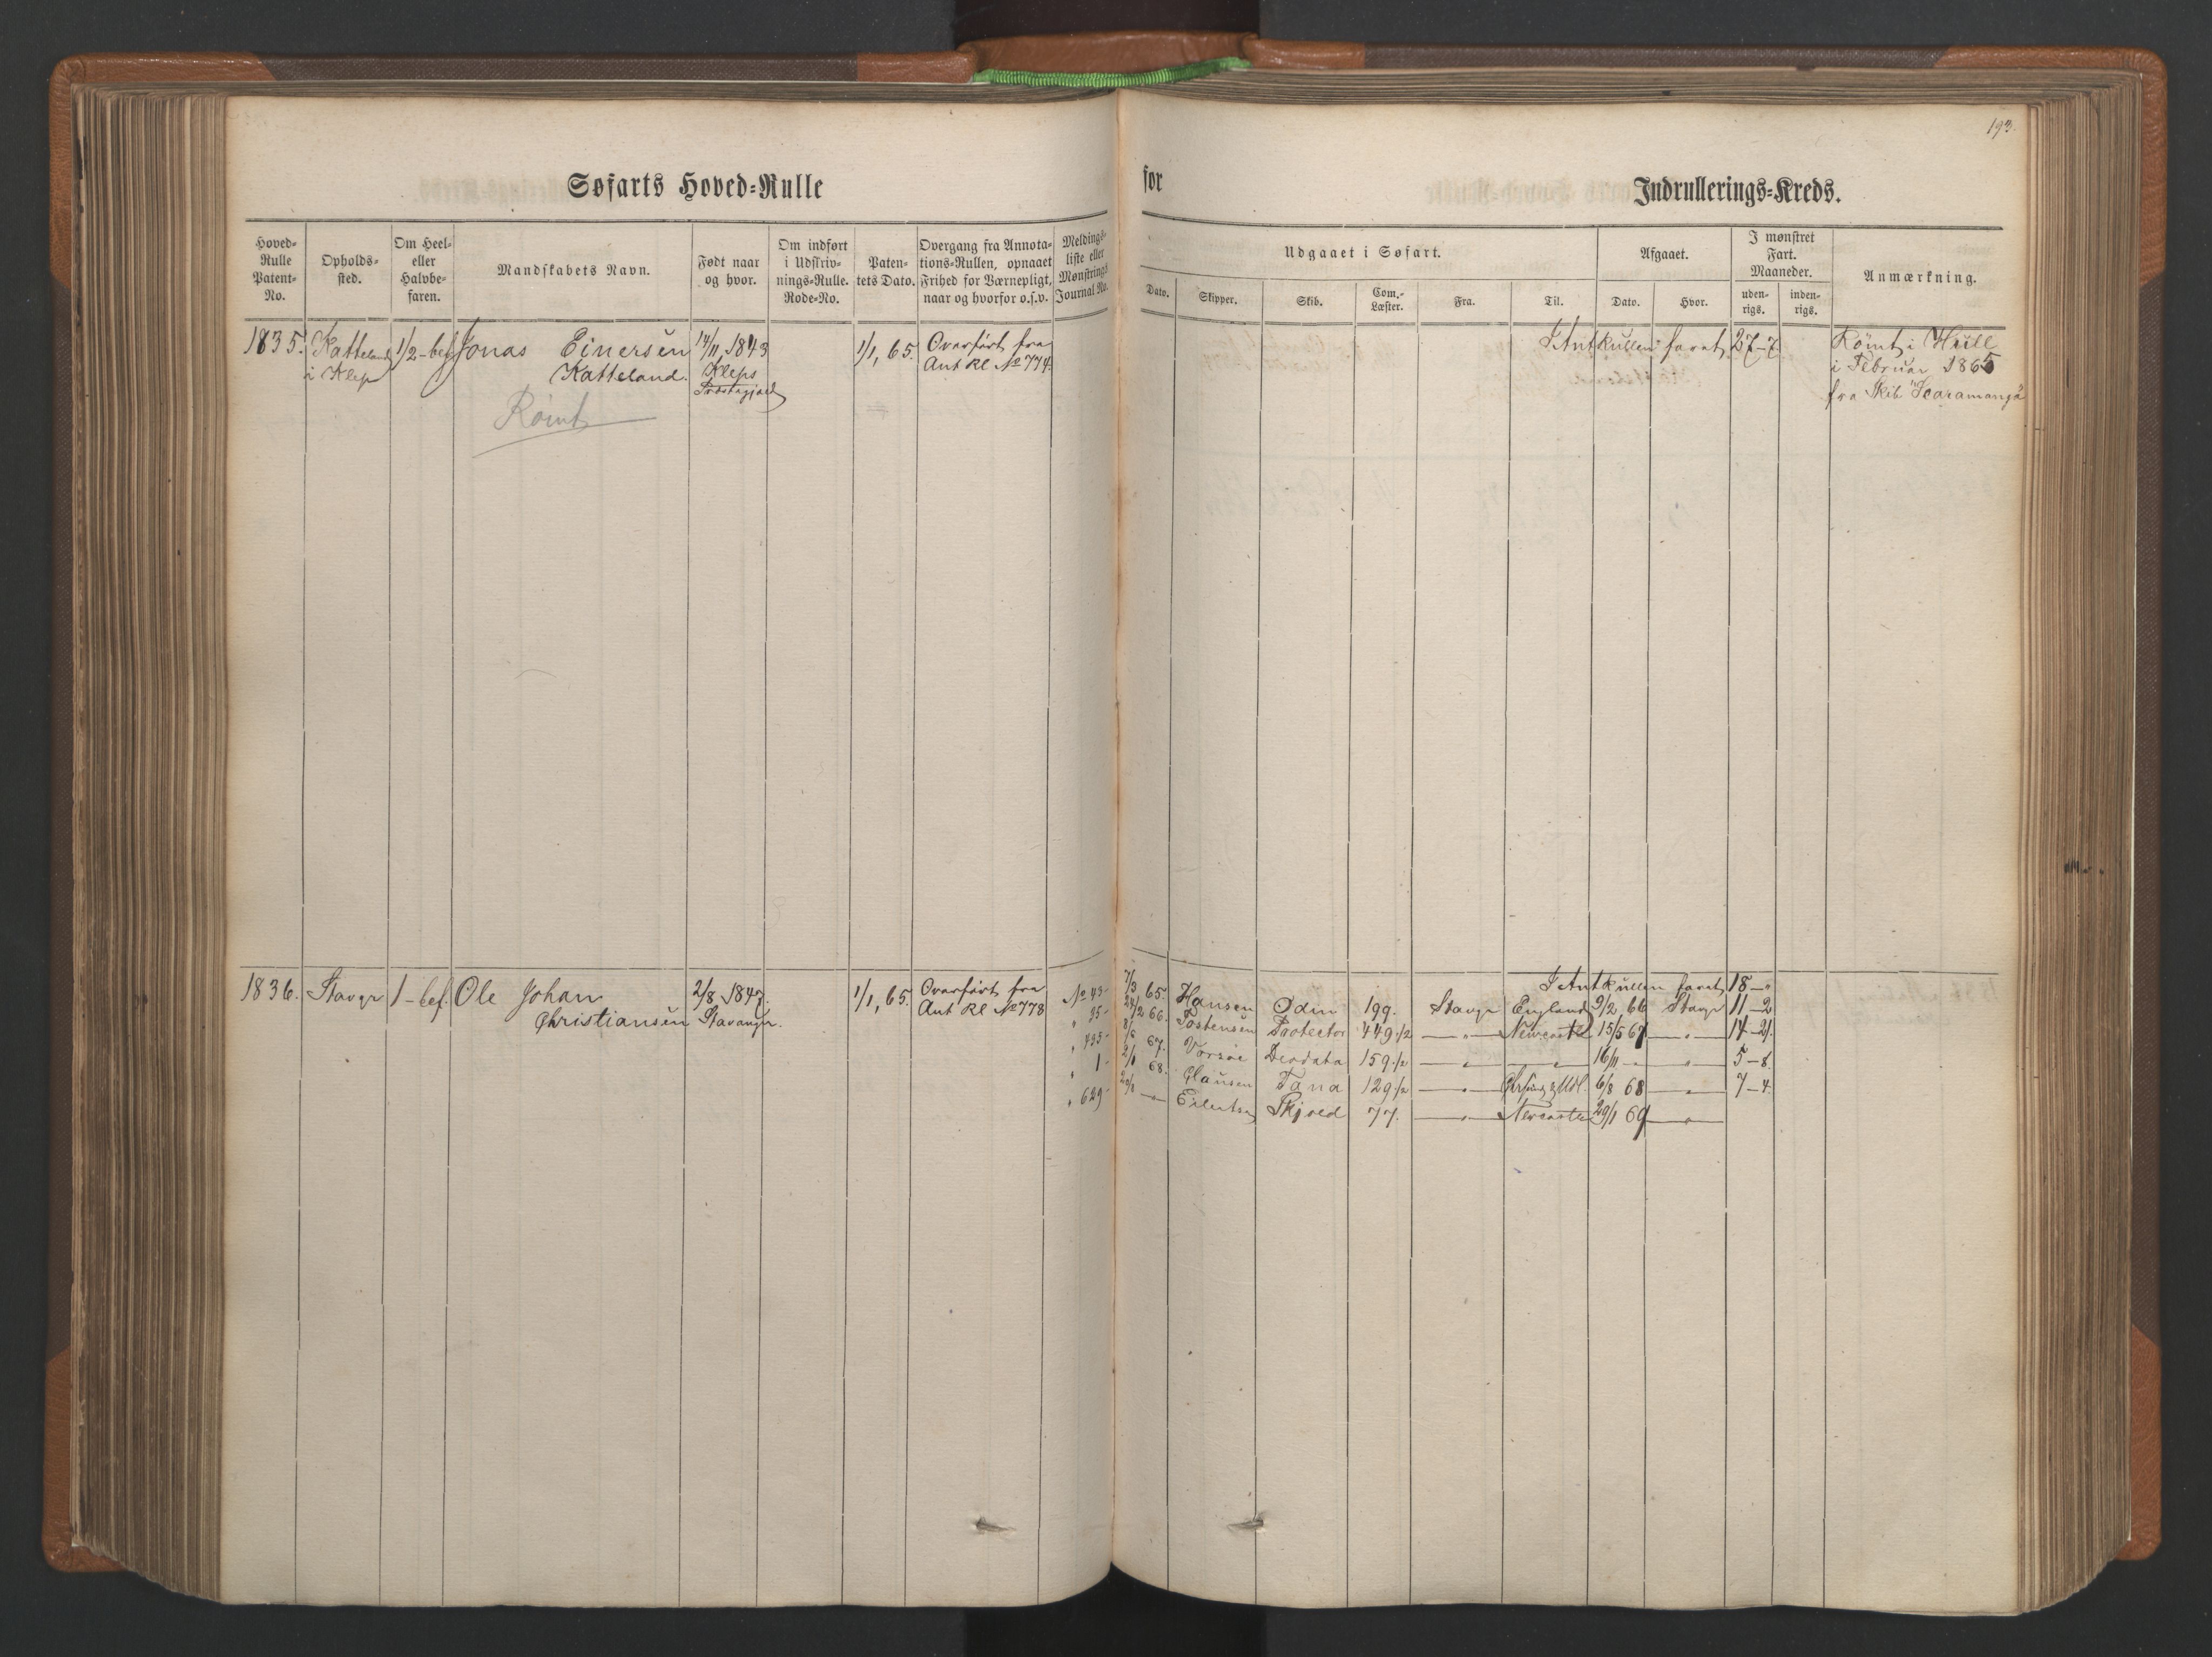 193.
Søfarts Hoved=Rulle for Indrullerings=Kreds.
Hoved=Rulle Patent=No.
Opholds=sted.
Om Heel= eller Halvbe=faren.
Mandskabets Navn.
Født naar og hvor.
Om indført i Udskriv=nings=Rulle. Rode=No.
Paten=tets Dato.
Overgang fra Annota=tions=Rullen, opnaaet Frihed for Værnepligt, naar og hvorfor o.s.v.
Meldings=liste eller Mønstrings Journal No.
Udgaaet i Søfart.
Dato. Skipper. Skib. Com.=Læster. Fra. Til.
Afgaaet.
Dato. Hvor.
I mønstret Fart. Maaneder.
uden=rigs. inden=rigs.
Anmærkning.
1835. Katteland 1/2-bef Jonas Einersen 14/11, 1843 1/1, 65. Overført fra I Antkullen faret 27-7 Rømt i Hull
i Klep Katteland. Kleps Ant Rl No 774. i Februar 1865
Præstegjæld fra Skib "Scaramanga"
Rømt
1836. Stavgr 1-bef. Ole Johan 2/8 1847. 1/1, 65. Overført fra I Antkullen faret 18-"
Christiansen Stavanger. Ant Rl No 778
No 43- 7/3 65. Hansen Odin 199. Stavgr England 9/2 66 Stavgr 11-2
" 35- 24/2 66. Tostensen Protector 449 1/2 —"— Newcastle 15/5 67. —"— 14-21.
67. Deodata 159 1/2 —"— 16/11 —"— 5-8.
" 1- 2/1 68. Clausen Tana 129 1/2 —"— 6/8 68 —"— 7-4.
" 629- —"— Eilertsen Skjold 77. —"— Newcastle 29/1 69 —"—